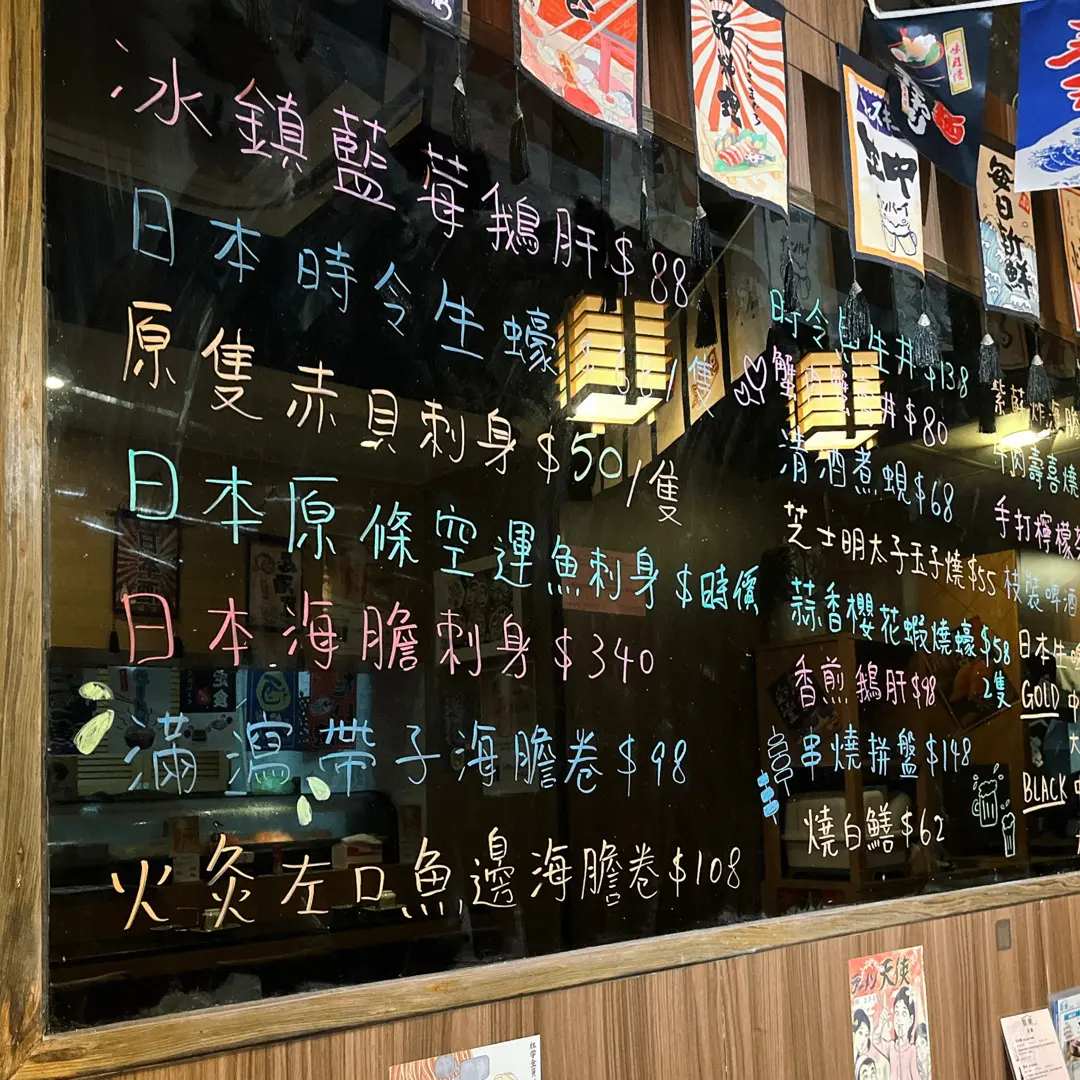 冰鎮藍莓鵝肝$88
日本時令生蠔 /隻
原隻赤貝刺身$50/隻
日本原條空運魚刺身$時價
日本海膽刺身$340
滿瀉帶子海膽卷$98
火灸左口魚邊海膽卷$108
時令魚生丼$138
蟹 丼$80
清酒煮蜆$68
芝士明太子玉子燒$55
蒜香櫻花蝦燒蠔$58
2隻
香煎鵝肝$98
串燒拼盤$148
燒白鱔$62
手打檸檬
枝裝啤酒
日本生啤
GOLD 中
BLACK 中
品料理
毎日新鮮
天使